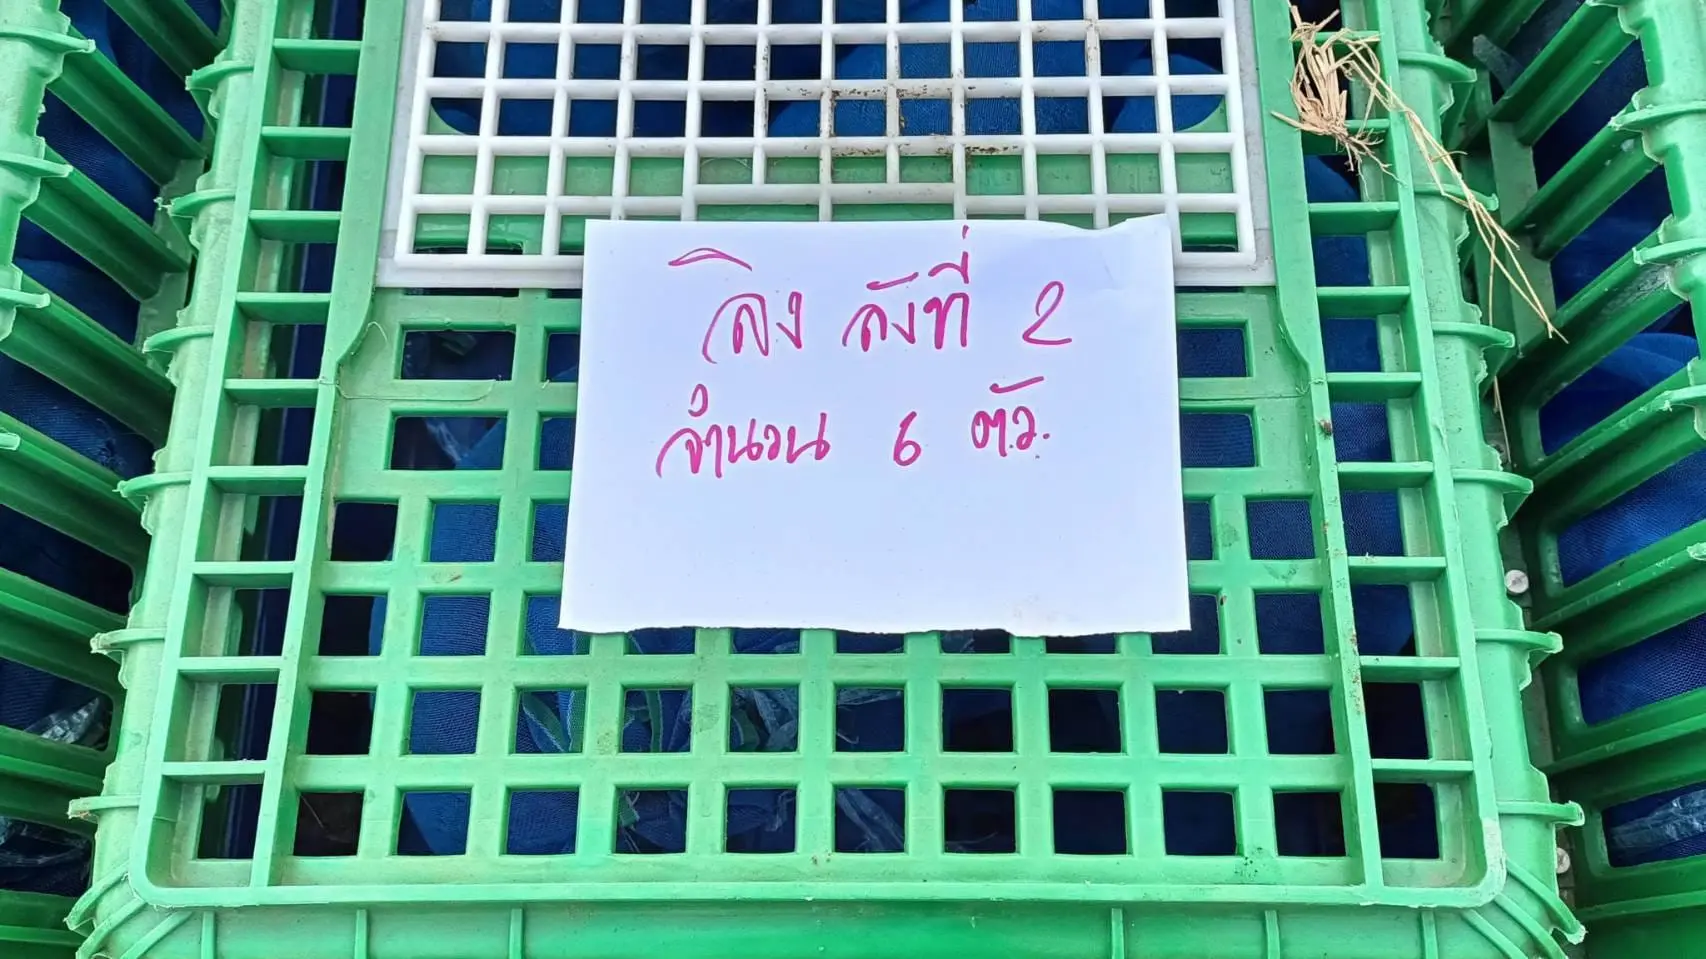 ลิง ลังที่ 2
จำนวน 6 ตัว.